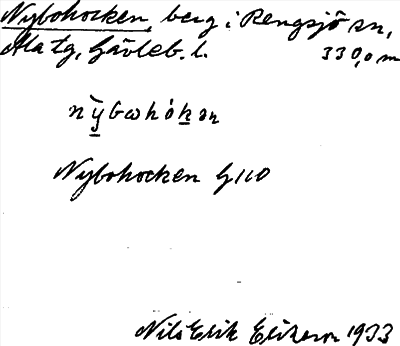 Nybohocken, berg i Rengsjö sn,
Ala tg, Gävleb. l. 330,0 m
nỳbωhókən
Nybohocken G110
Nils Erik Erikson 1933